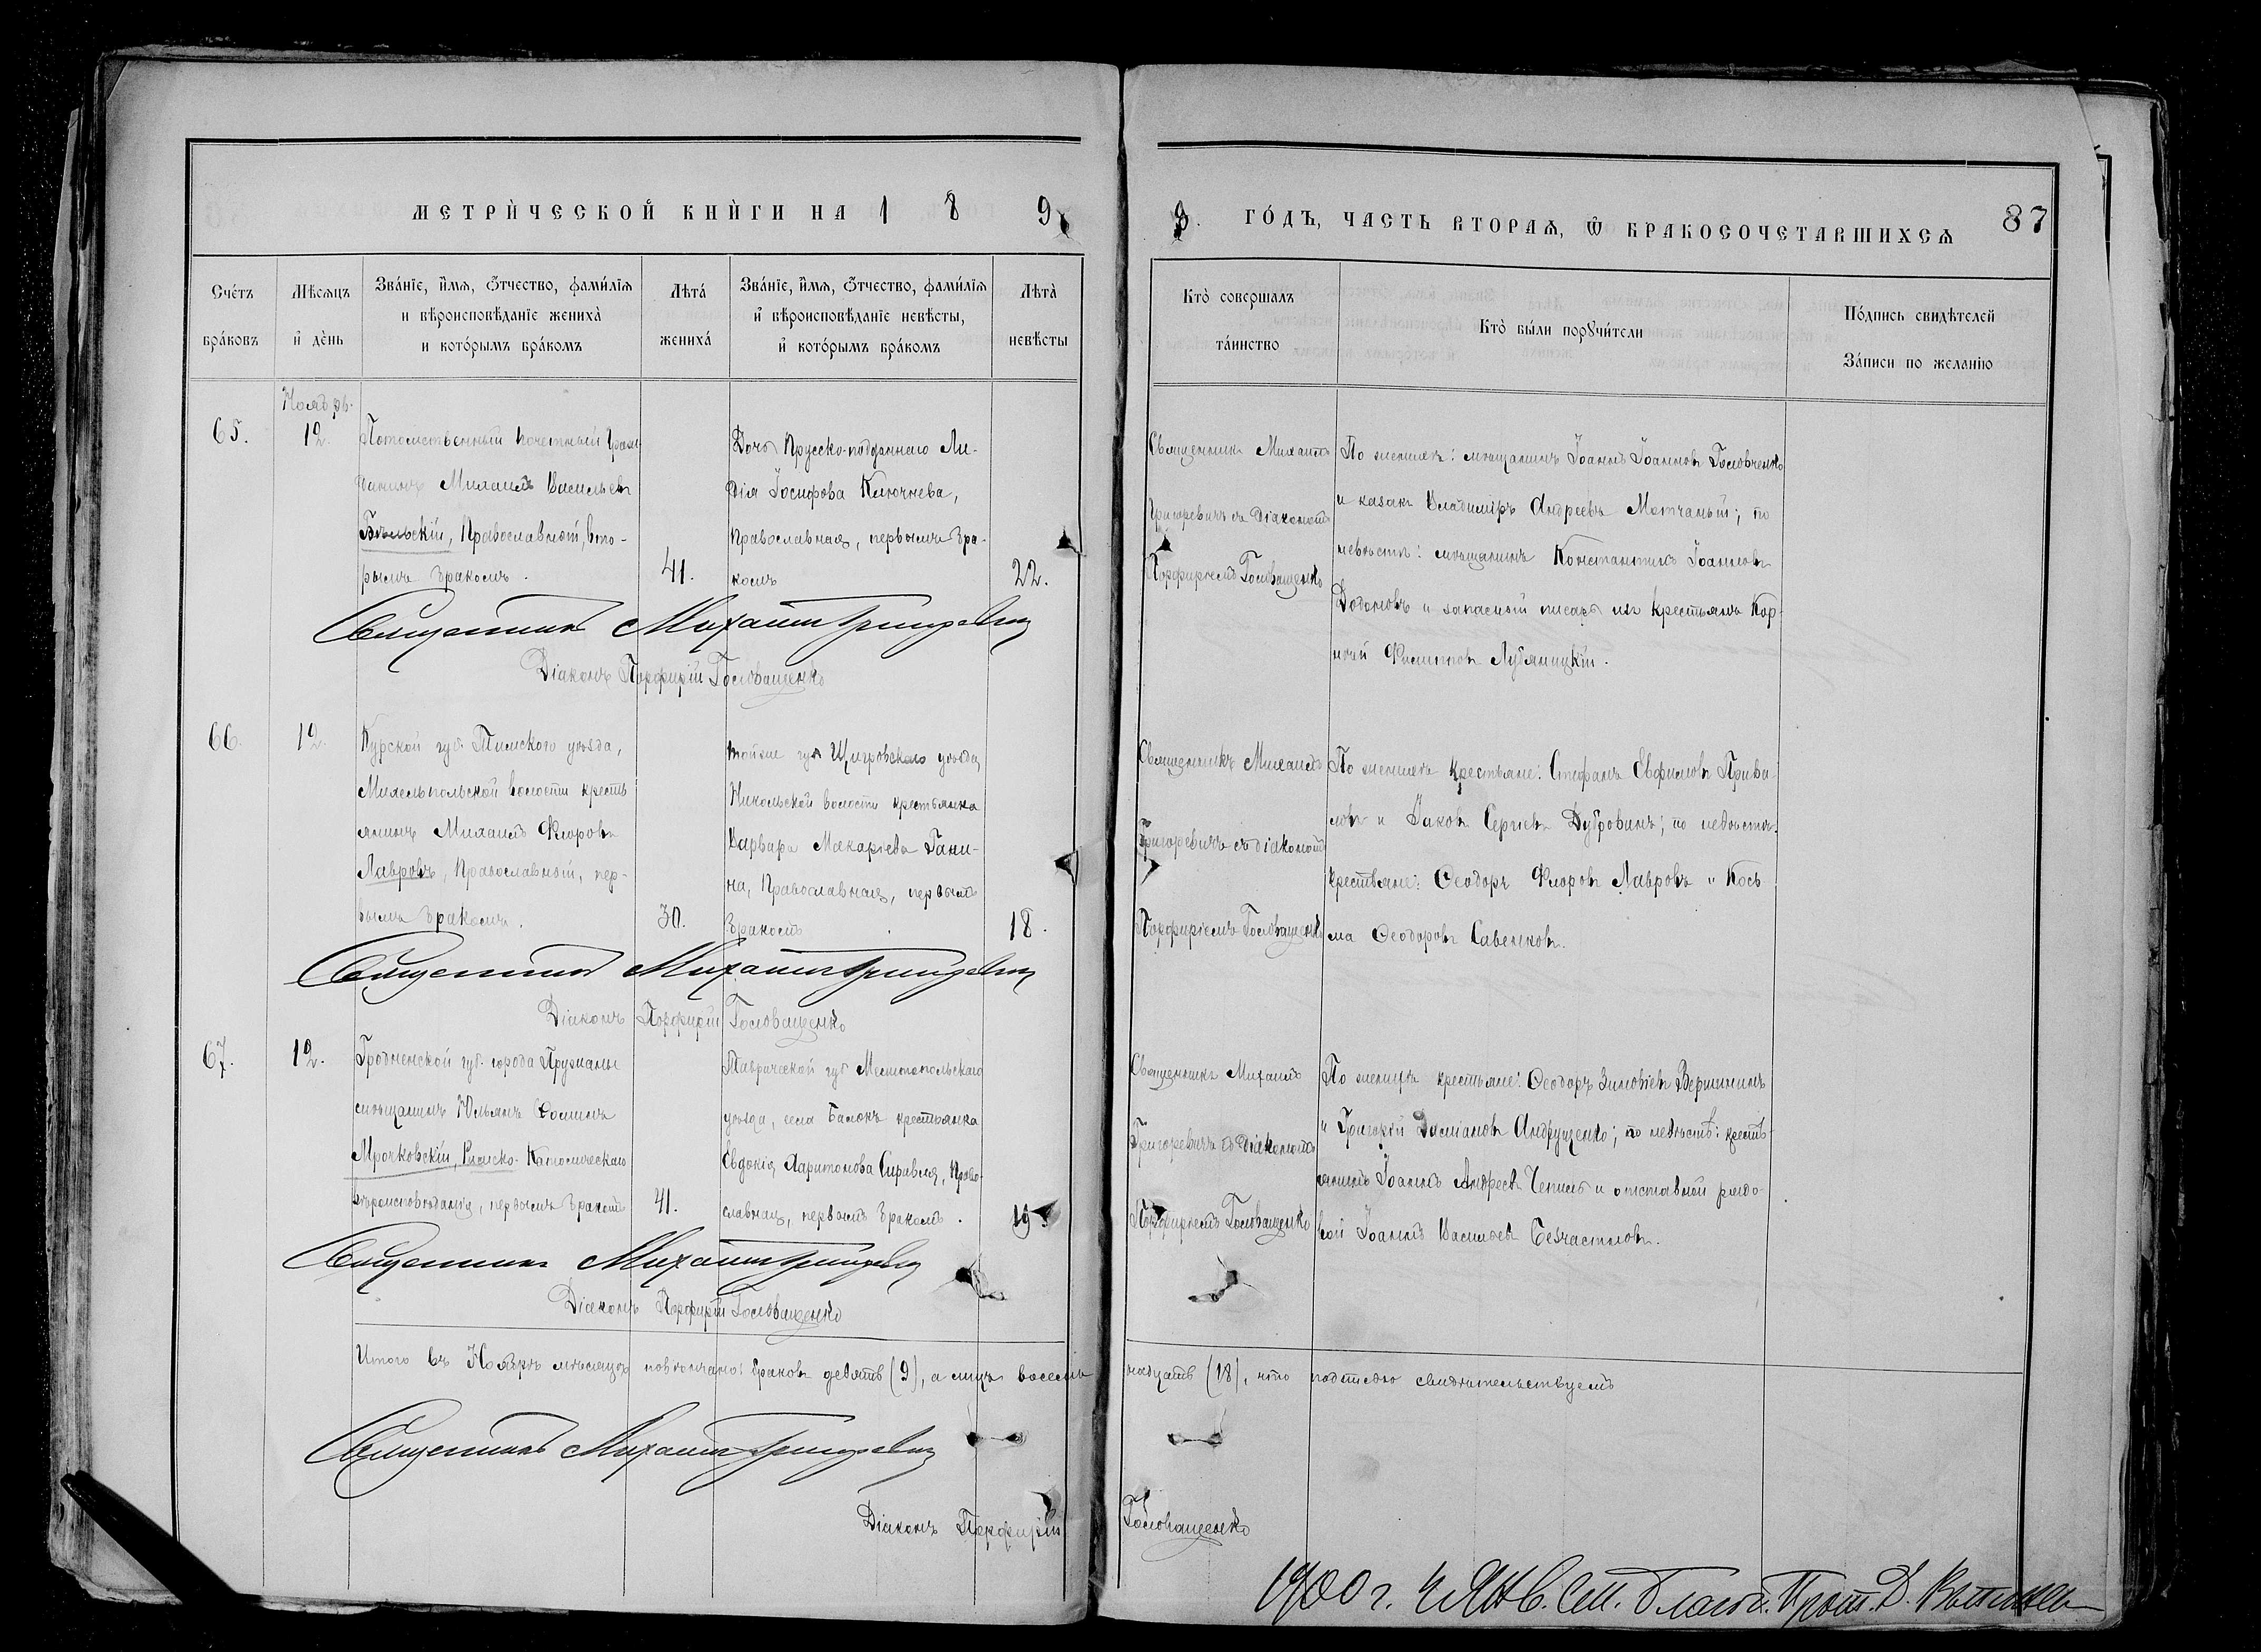 МЕТРИ́ЧЕСКОЙ КНИ́ГИ НА 1 8 9
9. ГО́ДЪ, ЧАСТЬ ВТОРАѦ, Ѿ БРАКОСОЧЕТАВШИХСѦ 87
Сче́тъ бра́ковъ
Мѣсѧцъ и҆ де́нь
Зва́нїе, и҆́мѧ, ѻ҆́тчество, фами́лїѧ и вѣроисповѣ́данїе жениха̀ и кото́рымъ бра́комъ
Лѣта́ жениха́
Зва́нїе, и҆́мѧ, ѻ҆́тчество, фами́лїѧ и҆ вѣроисповѣ́данїе невѣ́сты, и҆ кото́рымъ бра́комъ
Лѣта̀ невѣ́сты
Кто̀ совершалъ та́инство
Кто̀ бы́ли порꙋчи́тели
По́дпись свидѣ́телей За́писи по желанію
Ноябрь.
65.
12.
Потомственный почетный граж
данинъ Михаилъ Васильевъ
Бѣльскій, Православный, вто-
рымъ бракомъ.
41.
Дочь Прусско-подданнаго Ли-
дія Іосифова Ключнева,
православная, первымъ бра-
комъ
22.
Священникъ Михаилъ
Григоревичъ съ діакономъ
Порфиріемъ Головащенко
По женихѣ: мѣщанинъ Іоаннъ Іоанновъ Головченко
и казакъ Владиміръ Андреевъ Мотчаный; по
невѣстѣ: мѣщанинъ Константинъ Іоанновъ
Додоновъ и запасной писарь изъ крестьянъ Кор-
нилій Филипповъ Лубяницкій.
Священникъ Михаилъ Григоревичъ
Діаконъ Порфирій Головащенко
66.
12.
Курской губ. Тимского уѣзда,
Михельпольской волости кресть
янинъ Михаилъ Флоровъ
Лавровъ, Православный, пер-
вымъ бракомъ.
30.
тойже губ Щигровскаго уѣзда
Никольской волости крестьянка
Варвара Макаріева Гани-
на, Православная, первымъ
бракомъ
18.
Священникъ Михаилъ
Григоревичъ съ діакономъ
Порфиріемъ Головащенко
По женихѣ крестьяне: Стефанъ Евфимовъ Прива
ловъ и Іаковъ Сергіевъ Дубровинъ; по невѣстѣ
крестьяне: Ѳеодоръ Флоровъ Лавровъ и Кось
ма Ѳеодоровъ Савенковъ.
Священникъ Михаилъ Григоревичъ
Діаконъ Порфирій Головащенко
67.
12.
Гродненской губ. города Пружаны
мѣщанинъ Юльянъ Ѳоминъ
Мрочковскій, Римско-Католическаго
вѣроисповѣданія, первымъ бракомъ
41.
Таврической губ Мелитопольскаго
уѣзда, села Балокъ крестьянка
Евдокія Харитонова Сиравля, Право-
славная, первымъ бракомъ.
19.
Священникъ Михаилъ
Григоревичъ съ діакономъ
Порфиріемъ Головащенко
По женихѣ крестьяне: Ѳеодоръ Зиновіевъ Вершининъ
и Григорій Даміановъ Андрущенко; по невѣстѣ: кресть-
янинъ Іоаннъ Андреевъ Чепиль и отставной рядо-
вой Іоаннъ Васильевъ Безчастновъ.
Священникъ Михаилъ Григоревичъ
Діаконъ Порфирій Головащенко
Итого въ Ноябрѣ мѣсяцѣ повѣнчано: браковъ девять (9), а лицъ восемь
надцать (18), что подписью свидѣтельствуемъ
Священникъ Михаилъ Григоревичъ
Діаконъ Порфирій Головащенко
1900 г. 4 Янв. См. Благоч. Прот. Д.